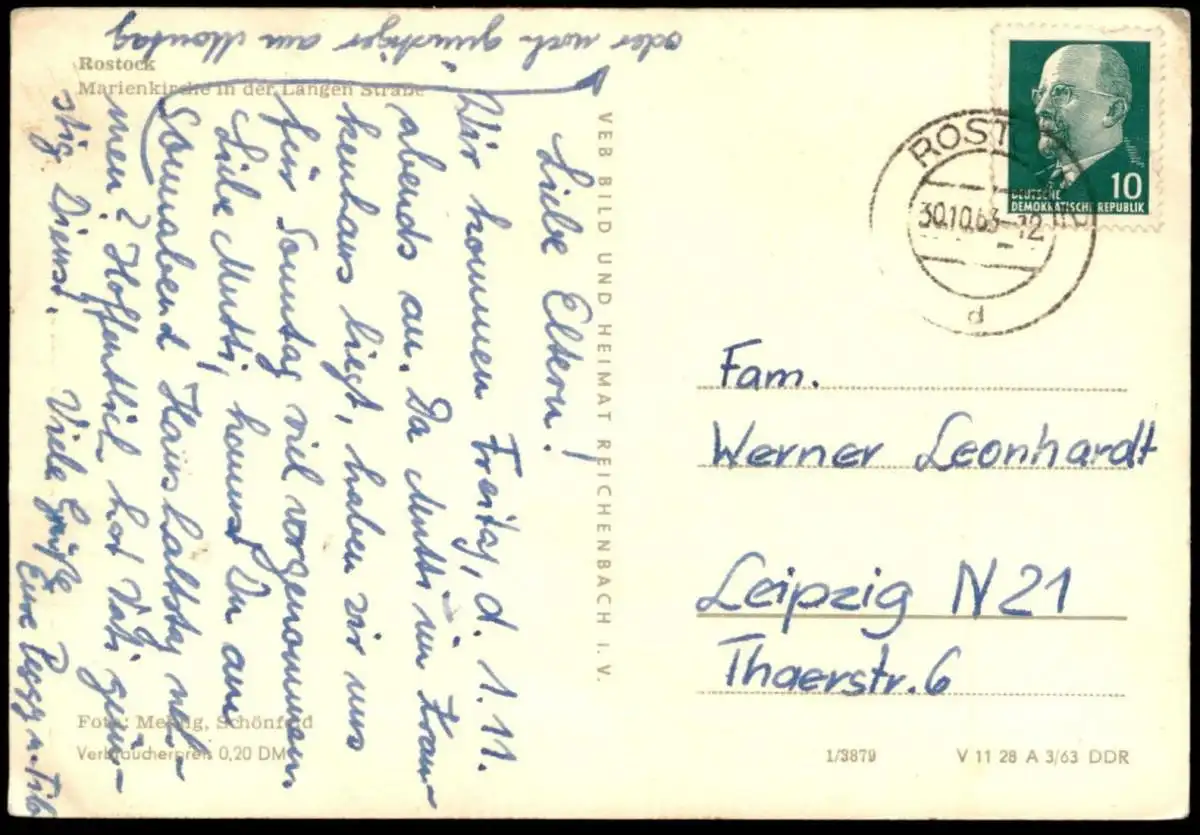 Rostock
Marienkirche in der Langen Straße
Liebe Eltern!
Wir kommen Freitag, d. 1.11.
abends an. Da Mutti im Kran-
kenhaus liegt, haben wir uns
für Sonntag viel vorgenommen.
Liebe Mutti, kannst Du am
Sonnabend Haushaltstag neh-
men? Hoffentlich hat Vati gün-
stig Dienst. Viele Grüße
Eure Peggy u.
oder noch günstiger am Montag
VEB BILD UND HEIMAT REICHENBACH I. V.
Foto: Schönfeld
Verbraucherpreis 0,20 DM
DEUTSCHE
DEMOKRATISCHE REPUBLIK
10
ROSTOCK
30.10.63-12
d
Fam.
Werner Leonhardt
Leipzig N 21
Thaerstr. 6
1/3879
V 11 28 A 3/63 DDR